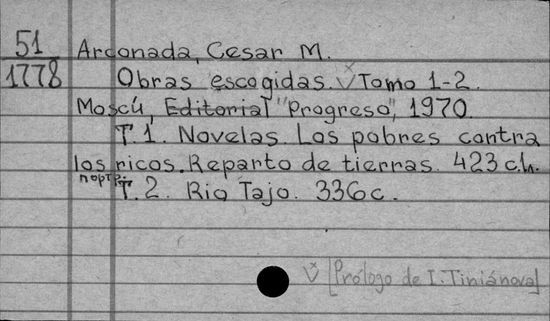 51
1778
Arconada, Cesar M.
Obras escogidas. Tomo 1-2.
Moscú, Editorial "Progreso", 1970.
T. 1. Novelas. Los pobres contra
los ricos. Reparto de tierras. 423 c.
портр.
T. 2. Rio Tajo. 336 c.
[Prólogo de I. Tiniánova]